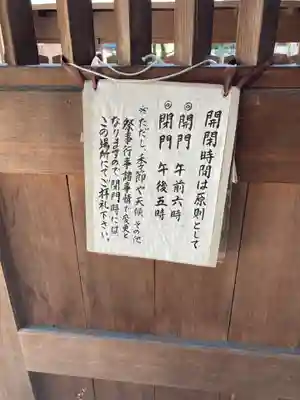 開閉時間は原則として
◎開門 午前六時
◎閉門 午後五時
※ただし、季節や天候その他
祭事・行事諸事情で変更と
なりますので、閉門時には、
この場所にてご拝礼下さい。